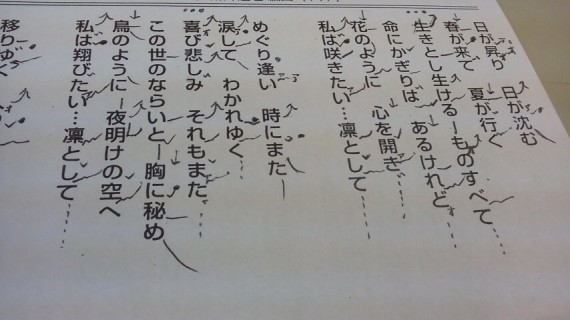 日が昇り 日が沈む
春が来て 夏が行く
生きとし生けるーものすべて
命にかぎりは あるけれど
花のように 心を開き
私は咲きたい…凛として……
めぐり逢い 時にまたー
涙して わかれゆく
喜び悲しみ それもまた
この世のならいと―胸に秘め
鳥のように―夜明けの空へ
私は翔びたい…凛として……
移りゆく